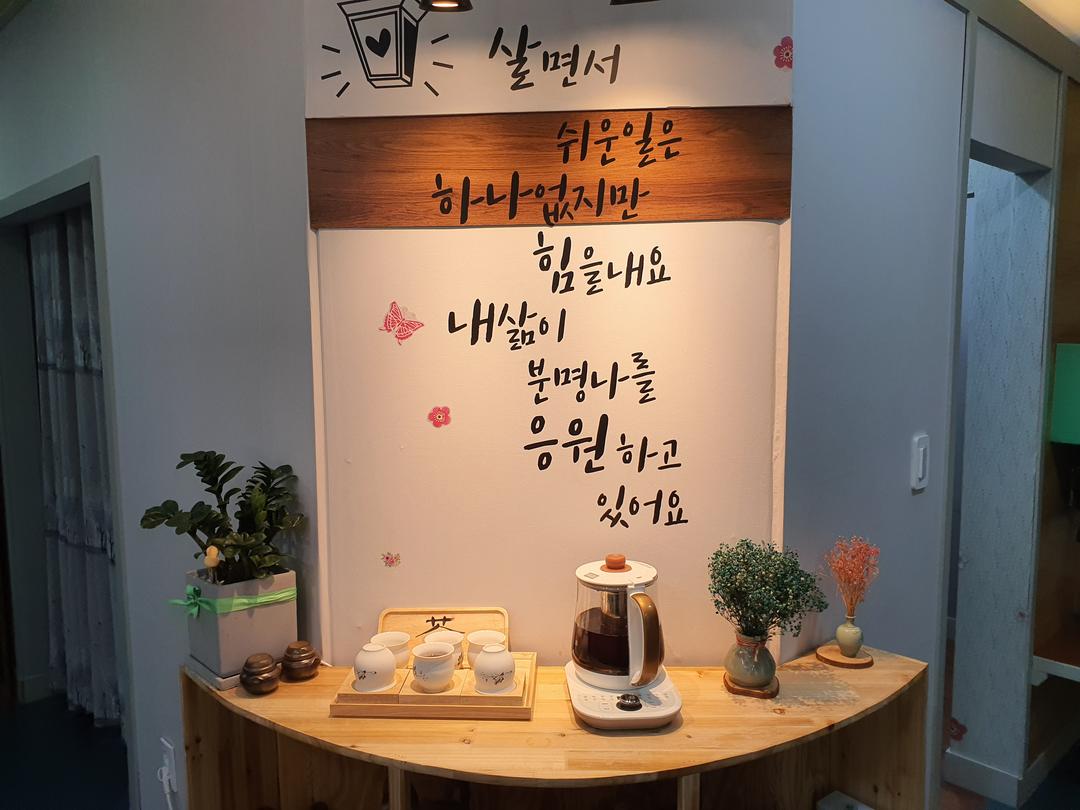 살면서
쉬운일은
하나없지만
힘을내요
내삶이
분명나를
응원하고
있어요
茶